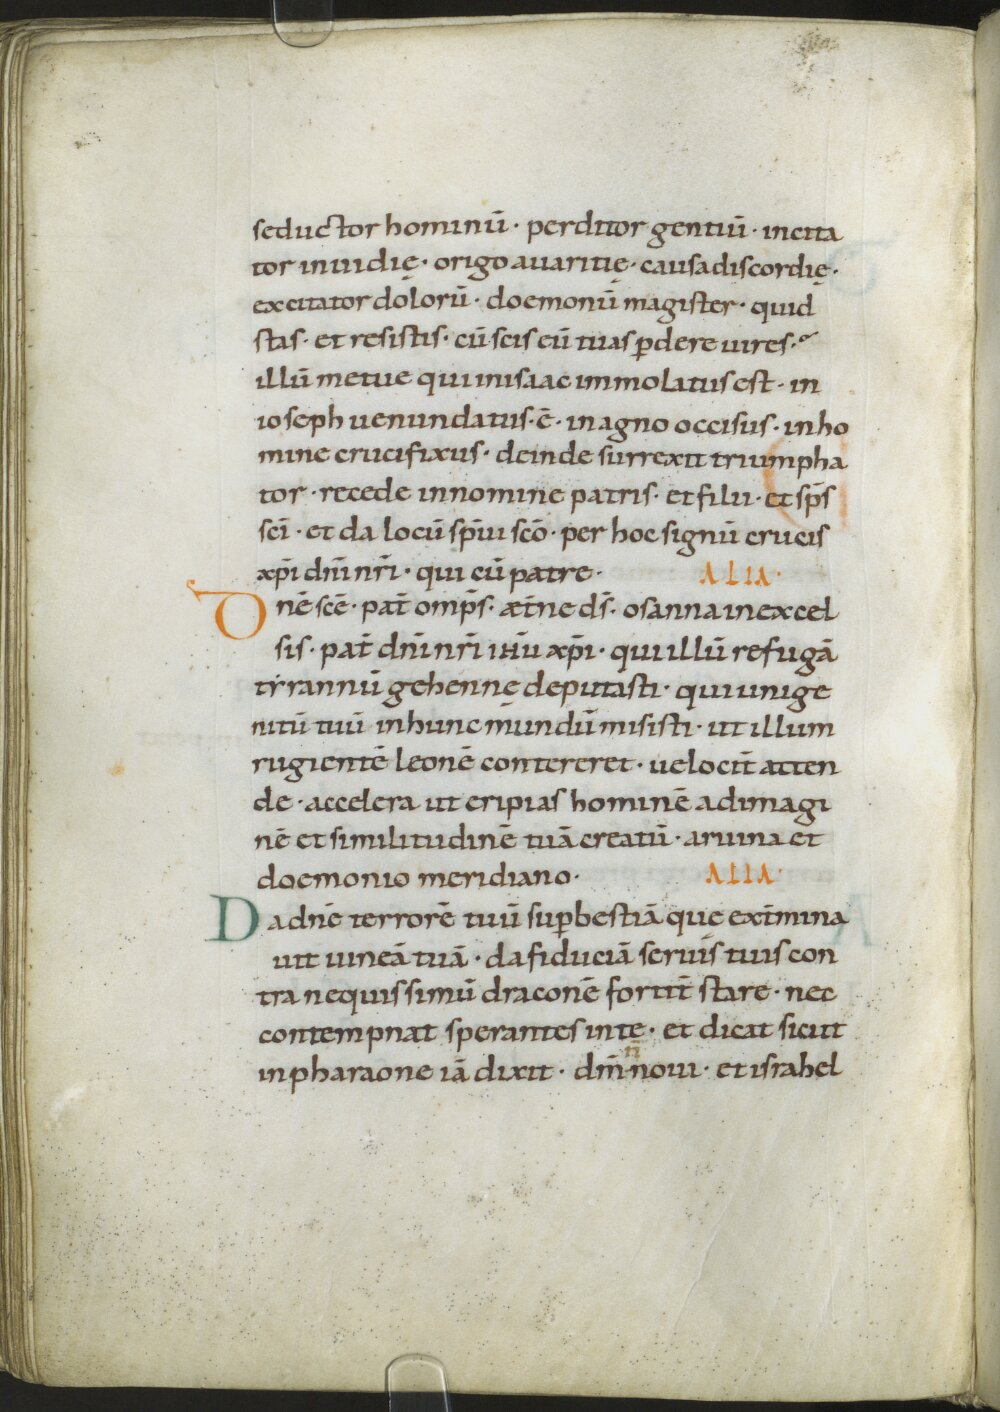 seductor hominū · perditor gentiū · incita
tor inuidię · origo auaritię · causa discordię ·
excitator dolorū · doemonū magister · quid
stas · et resistis · cū scis eū tuas ꝑdere uires ·
illū metue qui in isaac immolatus est · in
ioseph uenundatus · ē · in agno occisus · in ho
mine crucifixus · deinde surrexit triumpha
tor · recede in nomine patris · et filii · et sp̄s
sc̄i · et da locū sp̄ui sc̄o · per hoc signū crucis
xp̄i dn̄i nr̄i · qui cū patre · ALIA ·
Dnē scē · pat̄ omp̄s · æt̄ne d̄s · osanna in excel
sis · pat̄ dn̄i nr̄i ihū xp̄i · qui illū refugā
tyrannū gehennę deputasti · qui unige
nitū tuū in hunc mundū misisti · ut illum
rugientē leonē contereret · uelocit̄ atten
de · accelera ut eripias hominē ad imagi
nē et similitudinē tuā creatū · a ruina et
doemonio meridiano · ALIA ·
Da dnē terrorē tuū suꝑ bestiā quę ext̄mina
uit uineā tuā · da fiduciā seruis tuis con
tra nequissimū draconē fortit̄ stare · nec
contempnat sperantes in te · et dicat sicut
in pharaone iā dixit · dn̄m n̄ noui · et israhel